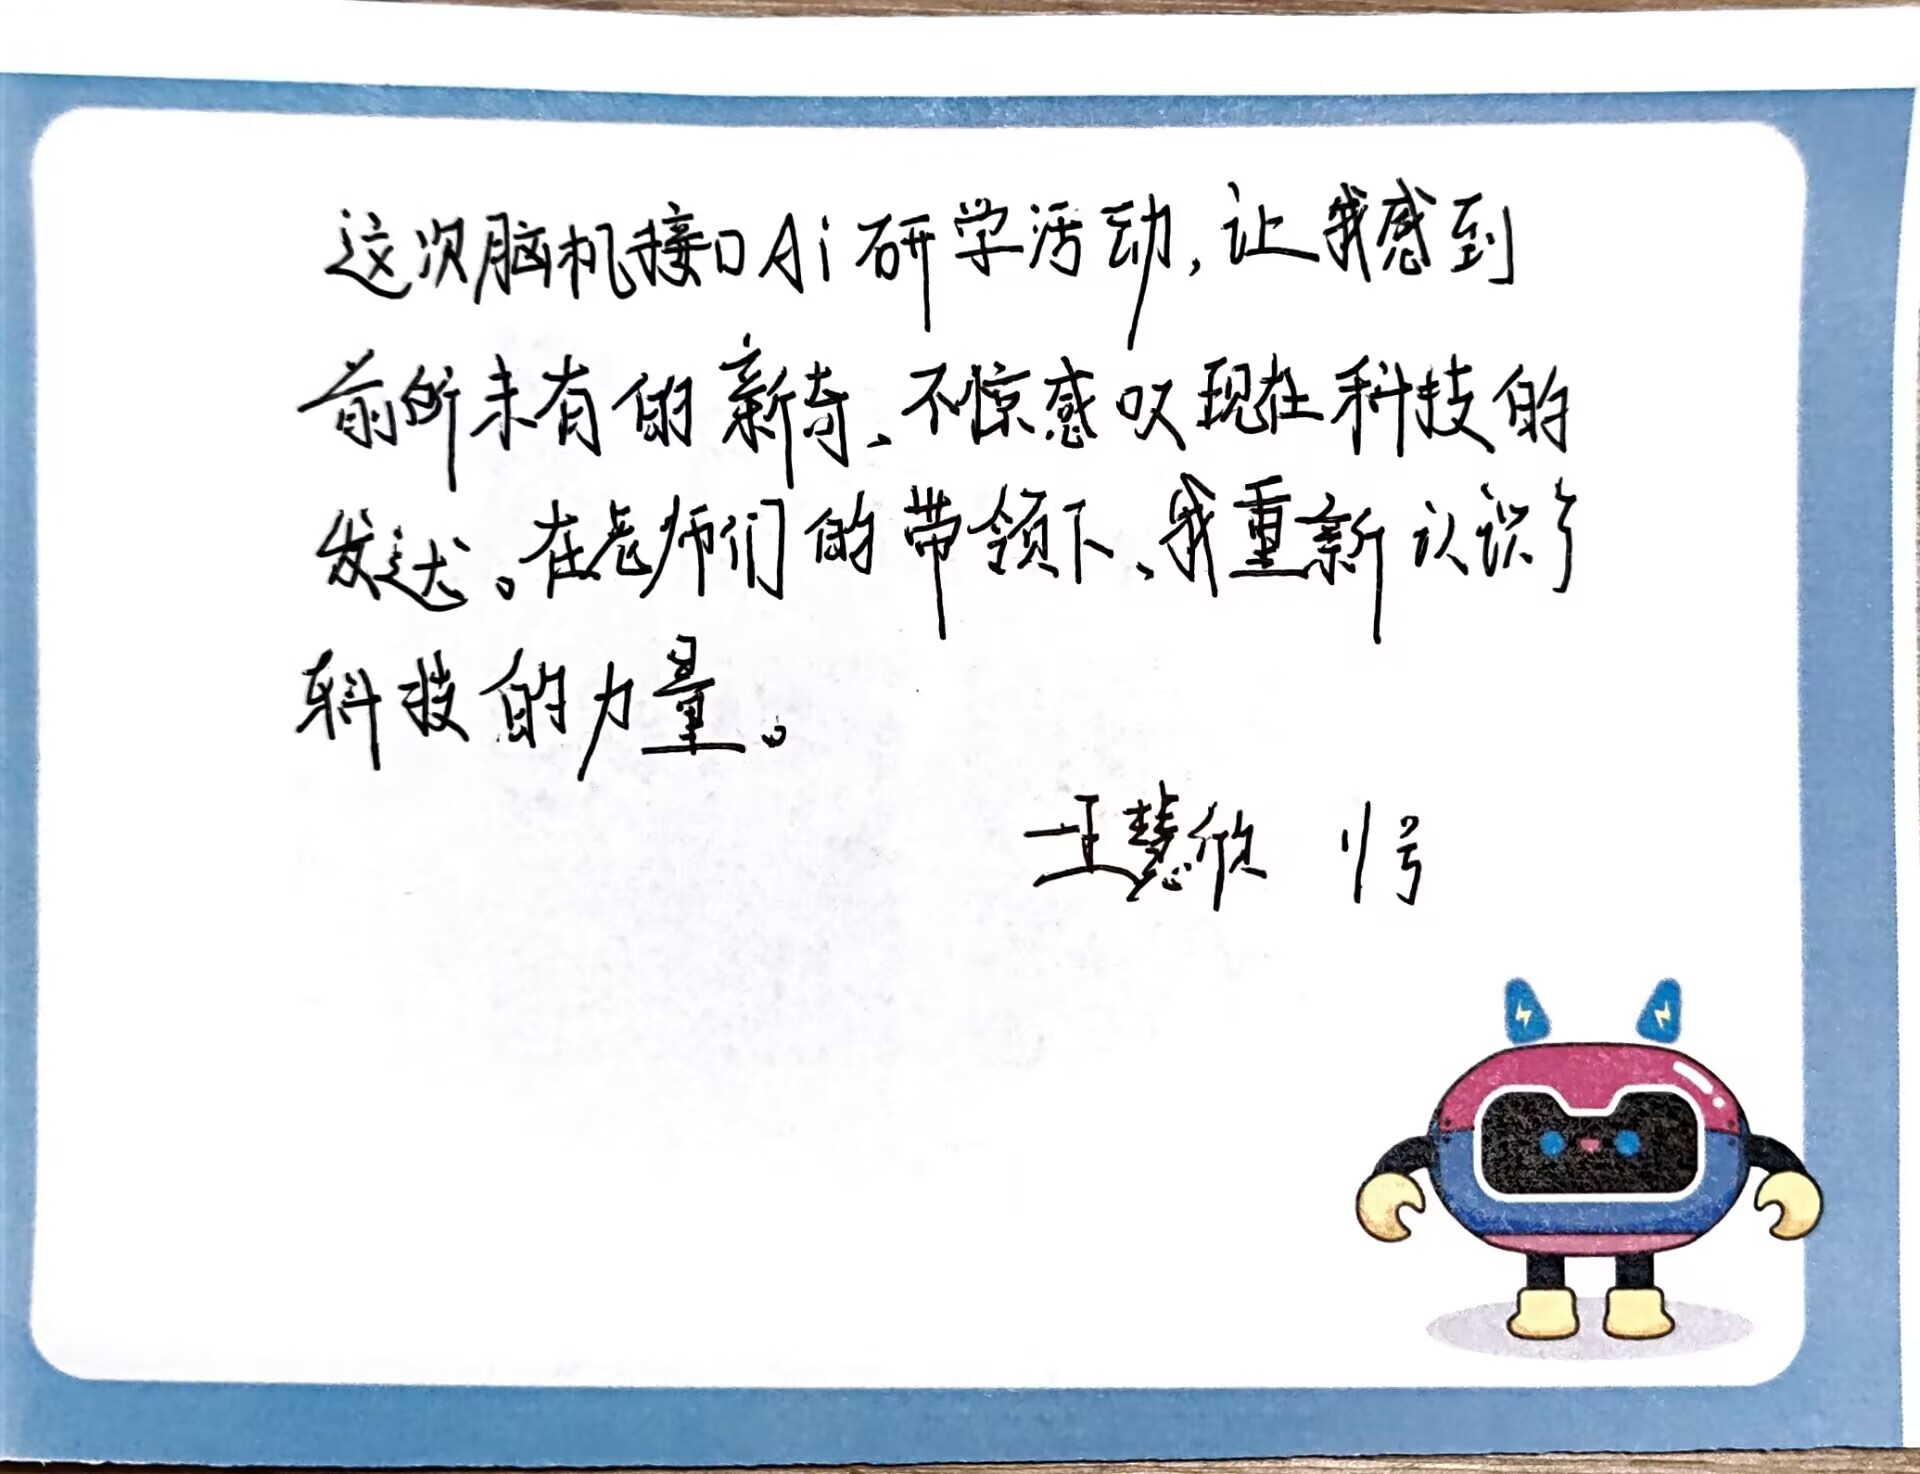 这次脑机接口Ai研学活动,让我感到
前所未有的新奇、不惊感叹现在科技的
发达。在老师们的带领下、我重新认识了
科技的力量。
王慧欣 11号